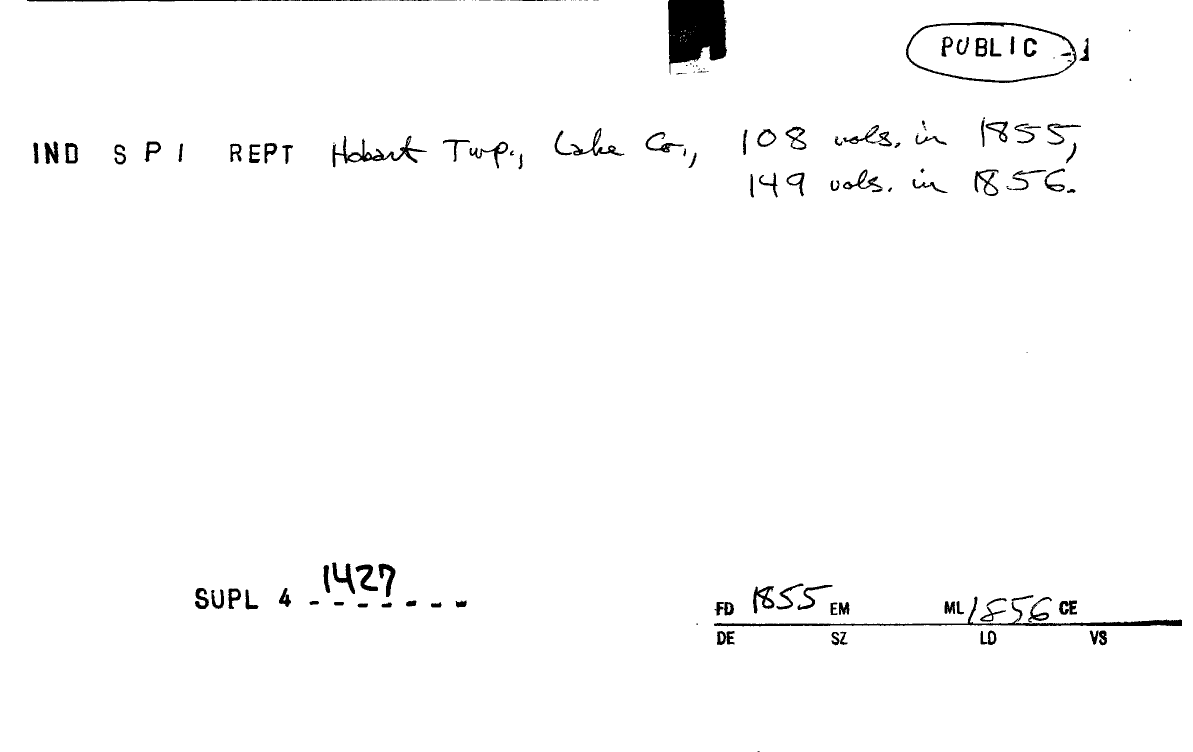 PUBLIC -1
IND S P I REPT Hobart Twp., Lake Co., 108 vols. in 1855,
149 vols. in 1856.
SUPL 4 1427
FD 1855 EM ML 1856 CE
DE SZ LD VS